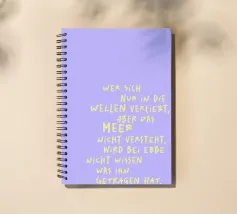 WER SICH
NUR IN DIE
WELLEN VERLIEBT,
ABER DAS
MEER
NICHT VERSTEHT,
WIRD BEI EBBE
NICHT WISSEN
WAS IHN
GETRAGEN HAT.